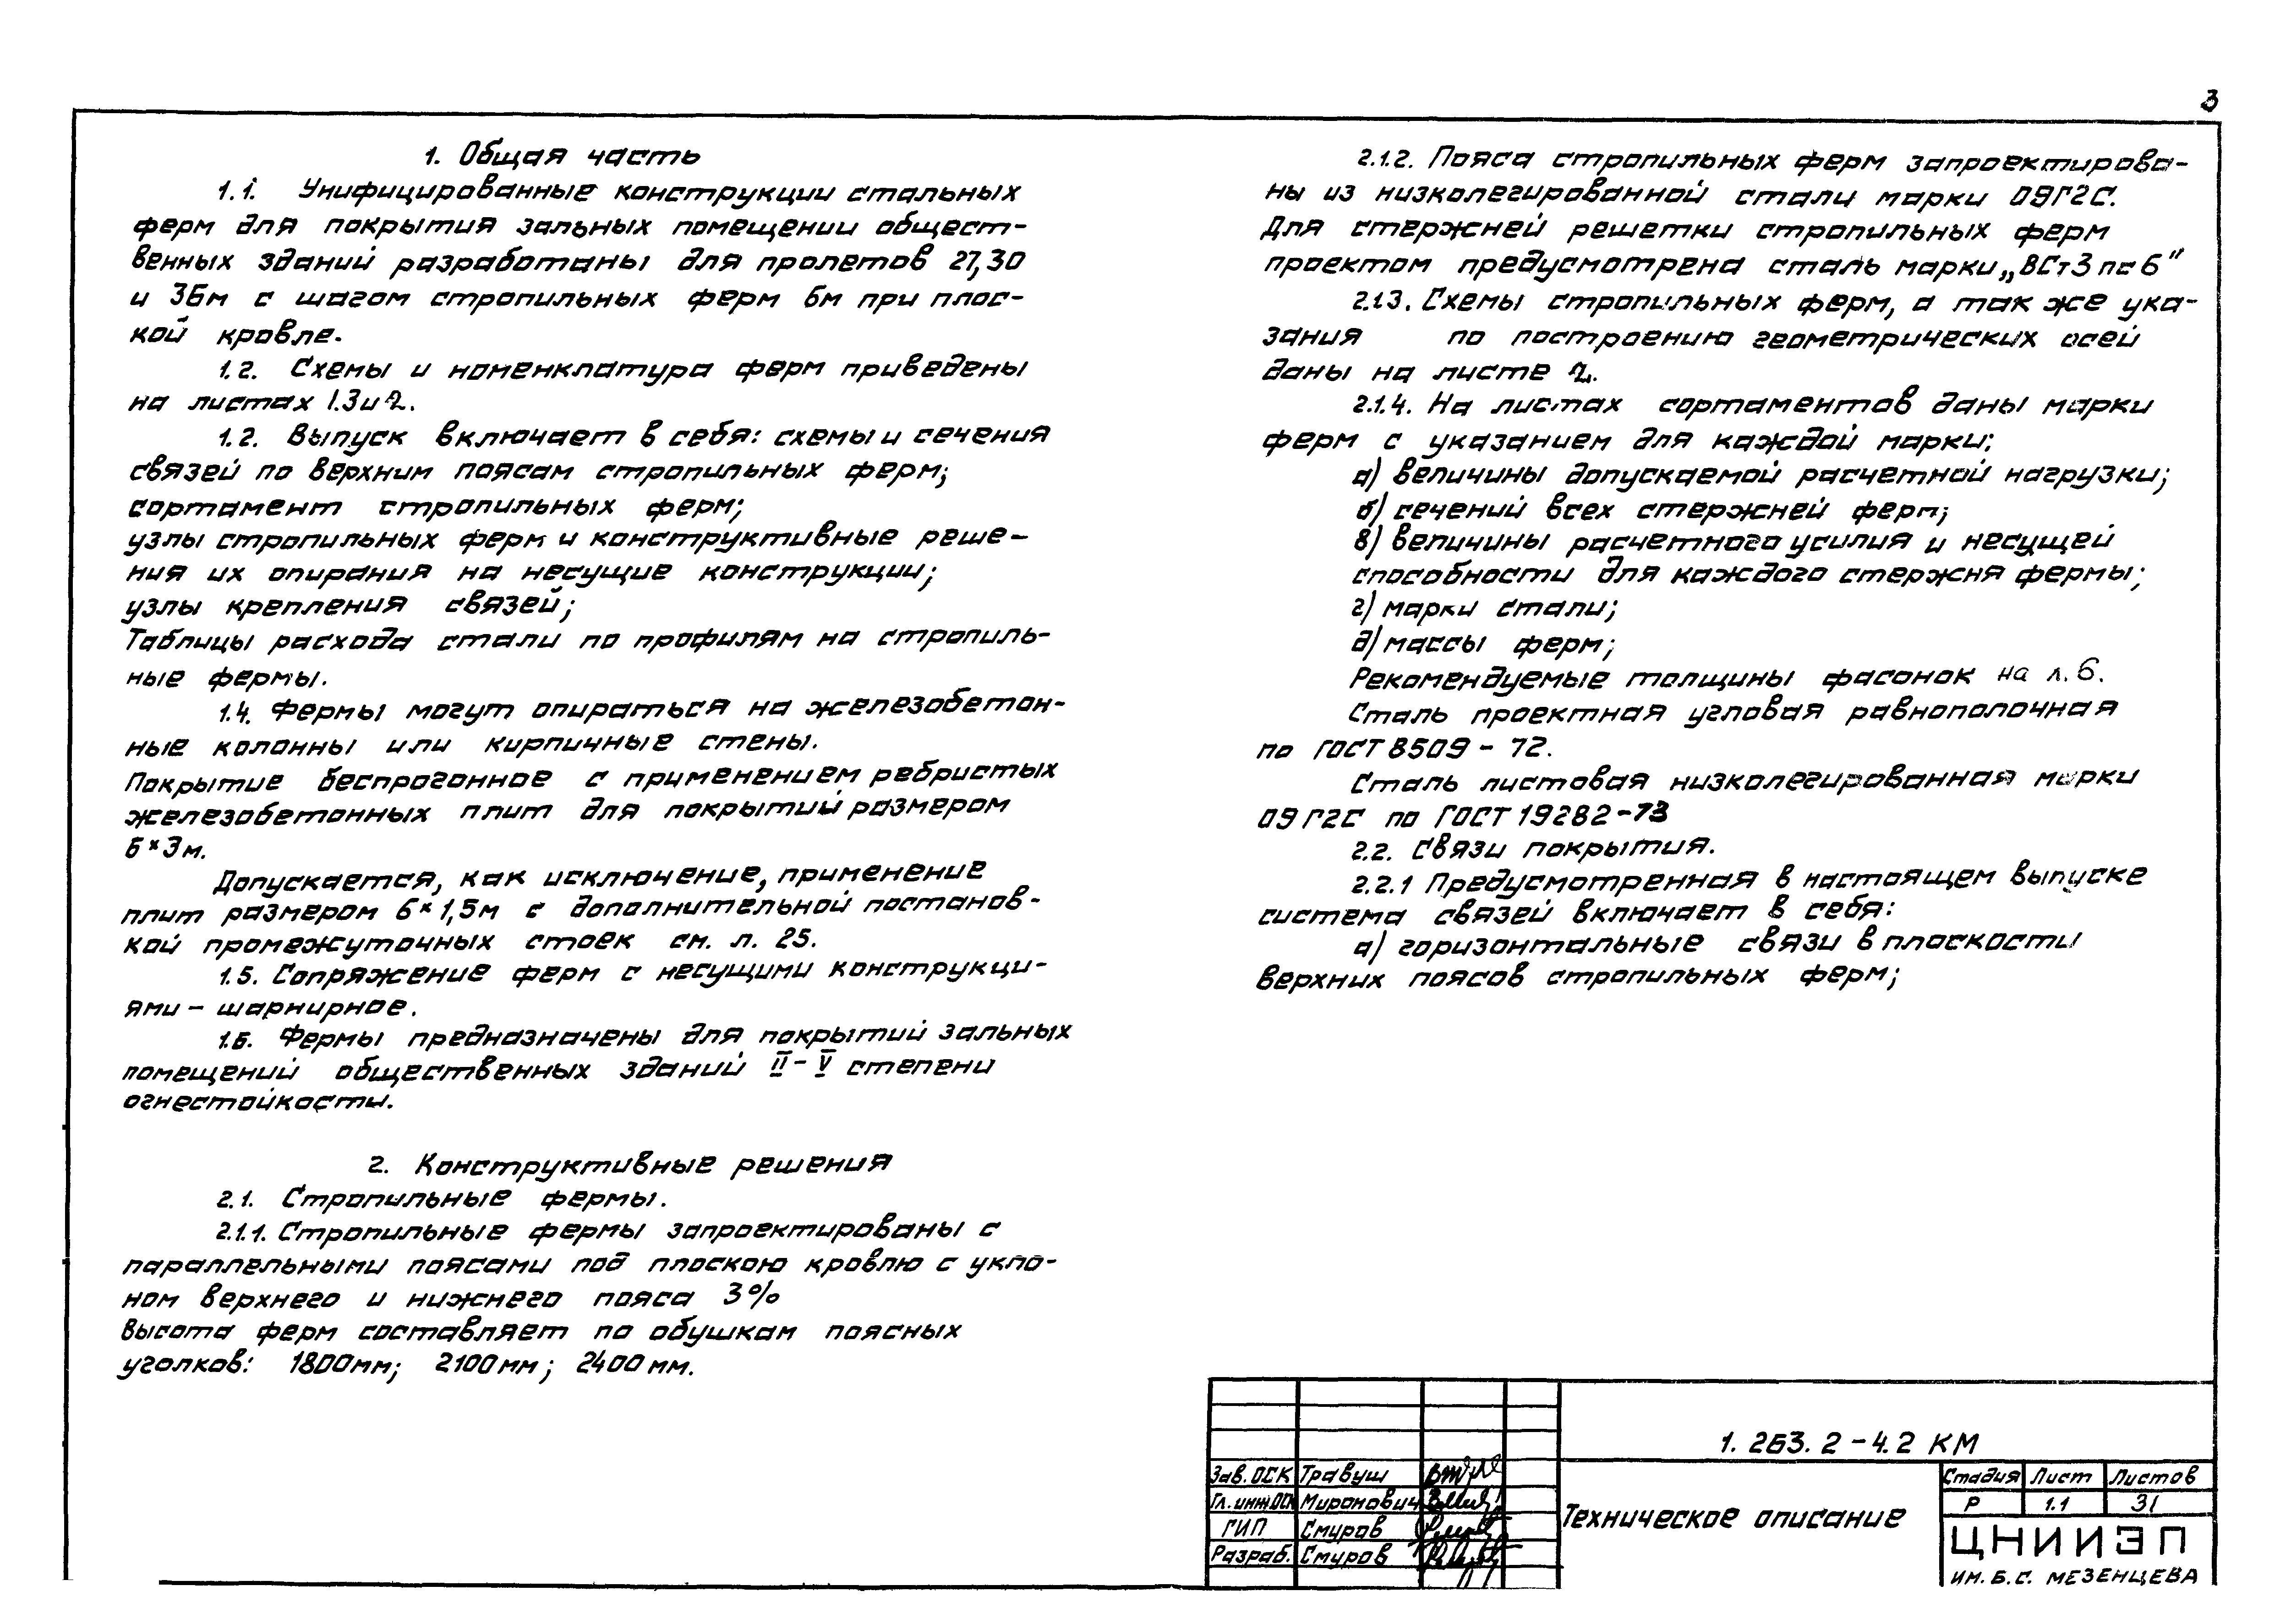 3
1. Общая часть
1.1. Унифицированные конструкции стальных
ферм для покрытия зальных помещении общест-
венных зданий разработаны для пролетов 27,30
и 36м с шагом стропильных ферм 6м при плос-
кой кровле.
1.2. Схемы и номенклатура ферм приведены
на листах 1.3 и 2.
1.2. Выпуск включает в себя: схемы и сечения
связей по верхним поясам стропильных ферм;
сортамент стропильных ферм;
узлы стропильных ферм и конструктивные реше-
ния их опирания на несущие конструкции;
узлы крепления связей;
Таблицы расхода стали по профилям на стропиль-
ные фермы.
1.4. Фермы могут опираться на железобетон-
ные колонны или кирпичные стены.
Покрытие беспрогонное с применением ребристых
железобетонных плит для покрытий размером
6×3м.
Допускается, как исключение, применение
плит размером 6×1,5м с дополнительной постанов-
кой промежуточных стоек см. л. 25.
1.5. Сопряжение ферм с несущими конструкци-
ями – шарнирное.
1.6. Фермы предназначены для покрытий зальных
помещений общественных зданий II – V степени
огнестойкости.
2. Конструктивные решения
2.1. Стропильные фермы.
2.1.1. Стропильные фермы запроектированы с
параллельными поясами под плоскою кровлю с укло-
ном верхнего и нижнего пояса 3%
Высота ферм составляет по обушкам поясных
уголков: 1800мм; 2100мм; 2400мм.
2.1.2. Пояса стропильных ферм запроектирова-
ны из низколегированной стали марки 09Г2С.
Для стержней решетки стропильных ферм
проектом предусмотрена сталь марки „ВСт3пс6"
2.1.3. Схемы стропильных ферм, а так же ука-
зания по построению геометрических осей
даны на листе 2.
2.1.4. На листах сортаментов даны марки
ферм с указанием для каждой марки:
а) величины допускаемой расчетной нагрузки;
б) сечений всех стержней ферм;
в) величины расчетного усилия и несущей
способности для каждого стержня фермы;
г) марки стали;
д) массы ферм;
Рекомендуемые толщины фасонок на л. 6.
Сталь проектная угловая равнополочная
по ГОСТ 8509 – 72.
Сталь листовая низколегированная марки
09Г2С по ГОСТ 19282–73
2.2. Связи покрытия.
2.2.1 Предусмотренная в настоящем выпуске
система связей включает в себя:
а) горизонтальные связи в плоскости
верхних поясов стропильных ферм;
1. 263. 2 – 4.2 КМ
Зав. ОСК Травуш
Гл. инж. ОСК Миронович
ГИП Смуров
Разраб. Смуров
Техническое описание
Стадия Лист Листов
Р 1.1 31
ЦНИИЭП
ИМ. Б.С. МЕЗЕНЦЕВА